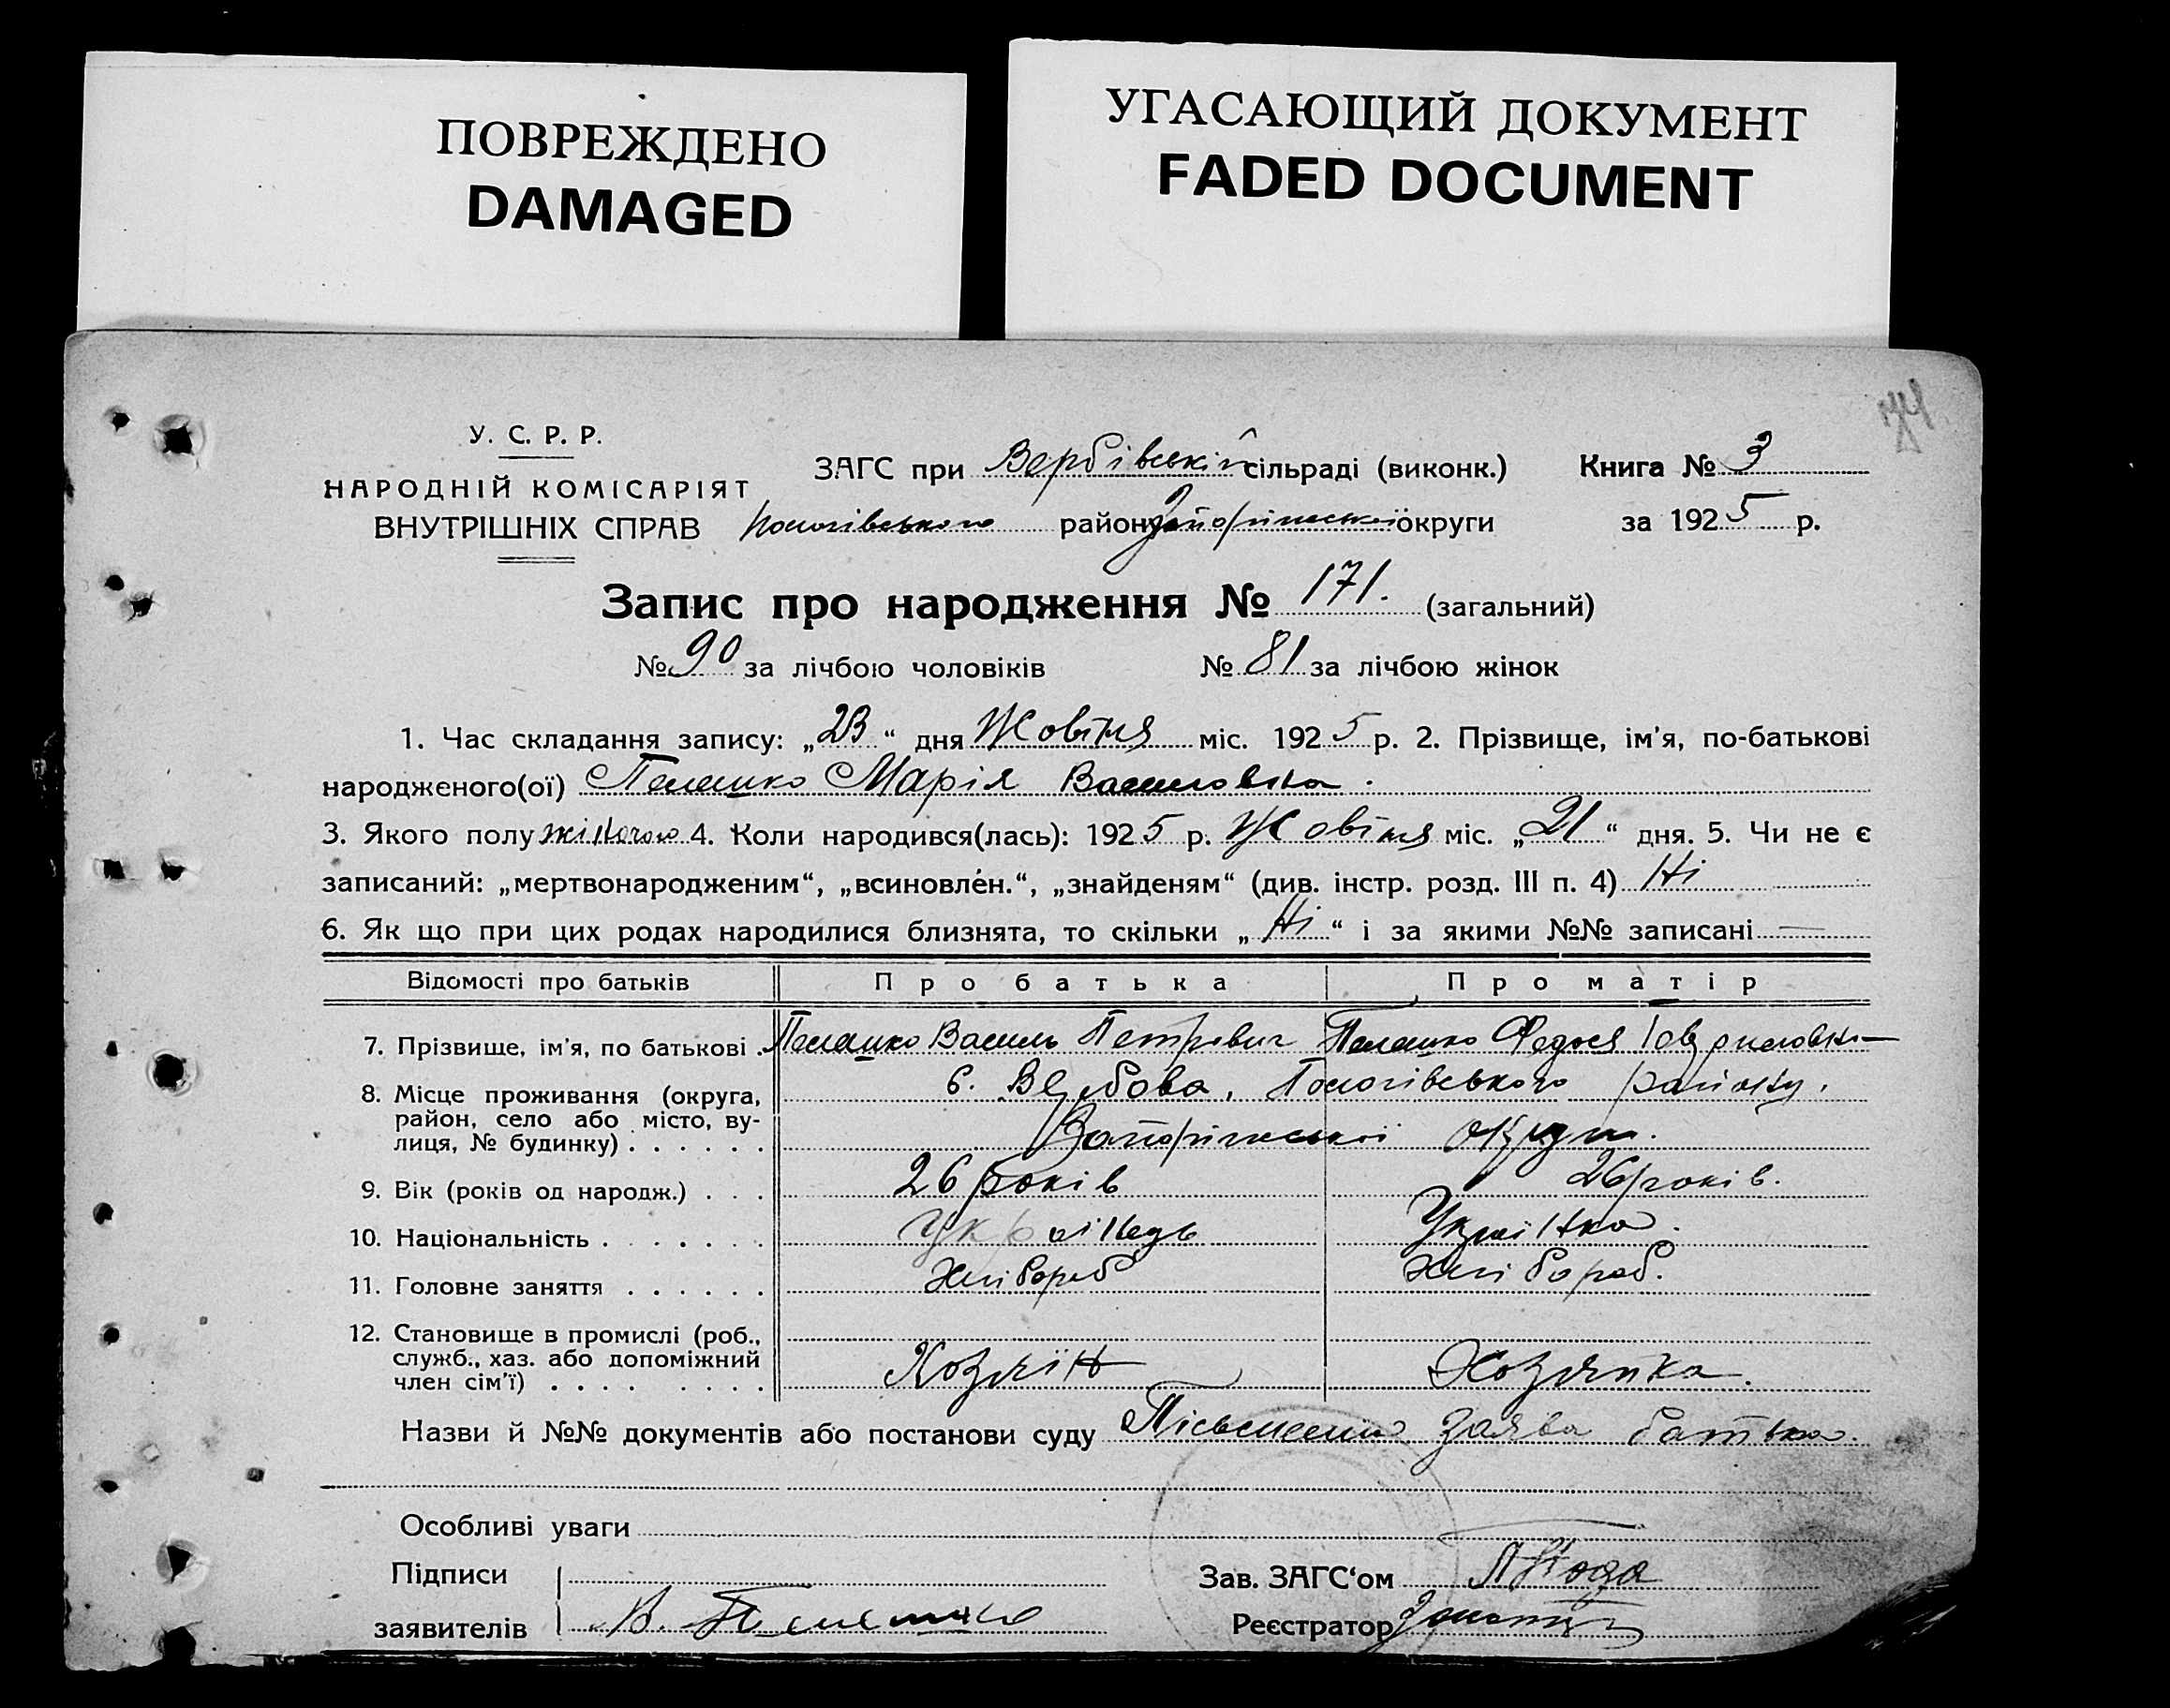 ПОВРЕЖДЕНО
DAMAGED
УГАСАЮЩИЙ ДОКУМЕНТ
FADED DOCUMENT
У. С. Р. Р.
НАРОДНІЙ КОМІСАРІЯТ
ВНУТРІШНІХ СПРАВ
ЗАГС при Вербівській сільраді (виконк.) Книга № 3
Пологівського району Запоріжської округи за 1925 р.
Запис про народження № 171. (загальний)
№ 90 за лічбою чоловіків № 81 за лічбою жінок
1. Час складання запису: „23“ дня Жовтня міс. 1925 р. 2. Прізвище, ім'я, по-батькові
народженого(ої) Марія Василовна.
3. Якого полу жіночого 4. Коли народився(лась): 1925 р. Жовтня міс. „21“ дня. 5. Чи не є
записаний: „мертвонародженим“, „всиновлен.“, „знайденям“ (див. інстр. розд. III п. 4) Ні
6. Як що при цих родах народилися близнята, то скільки „Ні“ і за якими №№ записані —
Відомості про батьків Про батька Про матір
7. Прізвище, ім'я, по батькові . Василь Петрович Федося
8. Місце проживання (округа, район, село або місто, вулиця, № будинку) . . . . . . с. Вербова, Пологівського району,
Запоріжської округи.
9. Вік (років од народж.) . . . 26 років 26 років.
10. Національність . . . . . . . Українець Українка.
11. Головне заняття . . . . . . Хлібороб Хлібороб.
12. Становище в промислі (роб., служб., хаз. або допоміжний член сім'ї) . . . . . . . . Хозяїн Хозяйка.
Назви й №№ документів або постанови суду Пісьменна заява батька.
Особливі уваги
Підписи
заявителів В.
Зав. ЗАГС'ом
Реєстратор